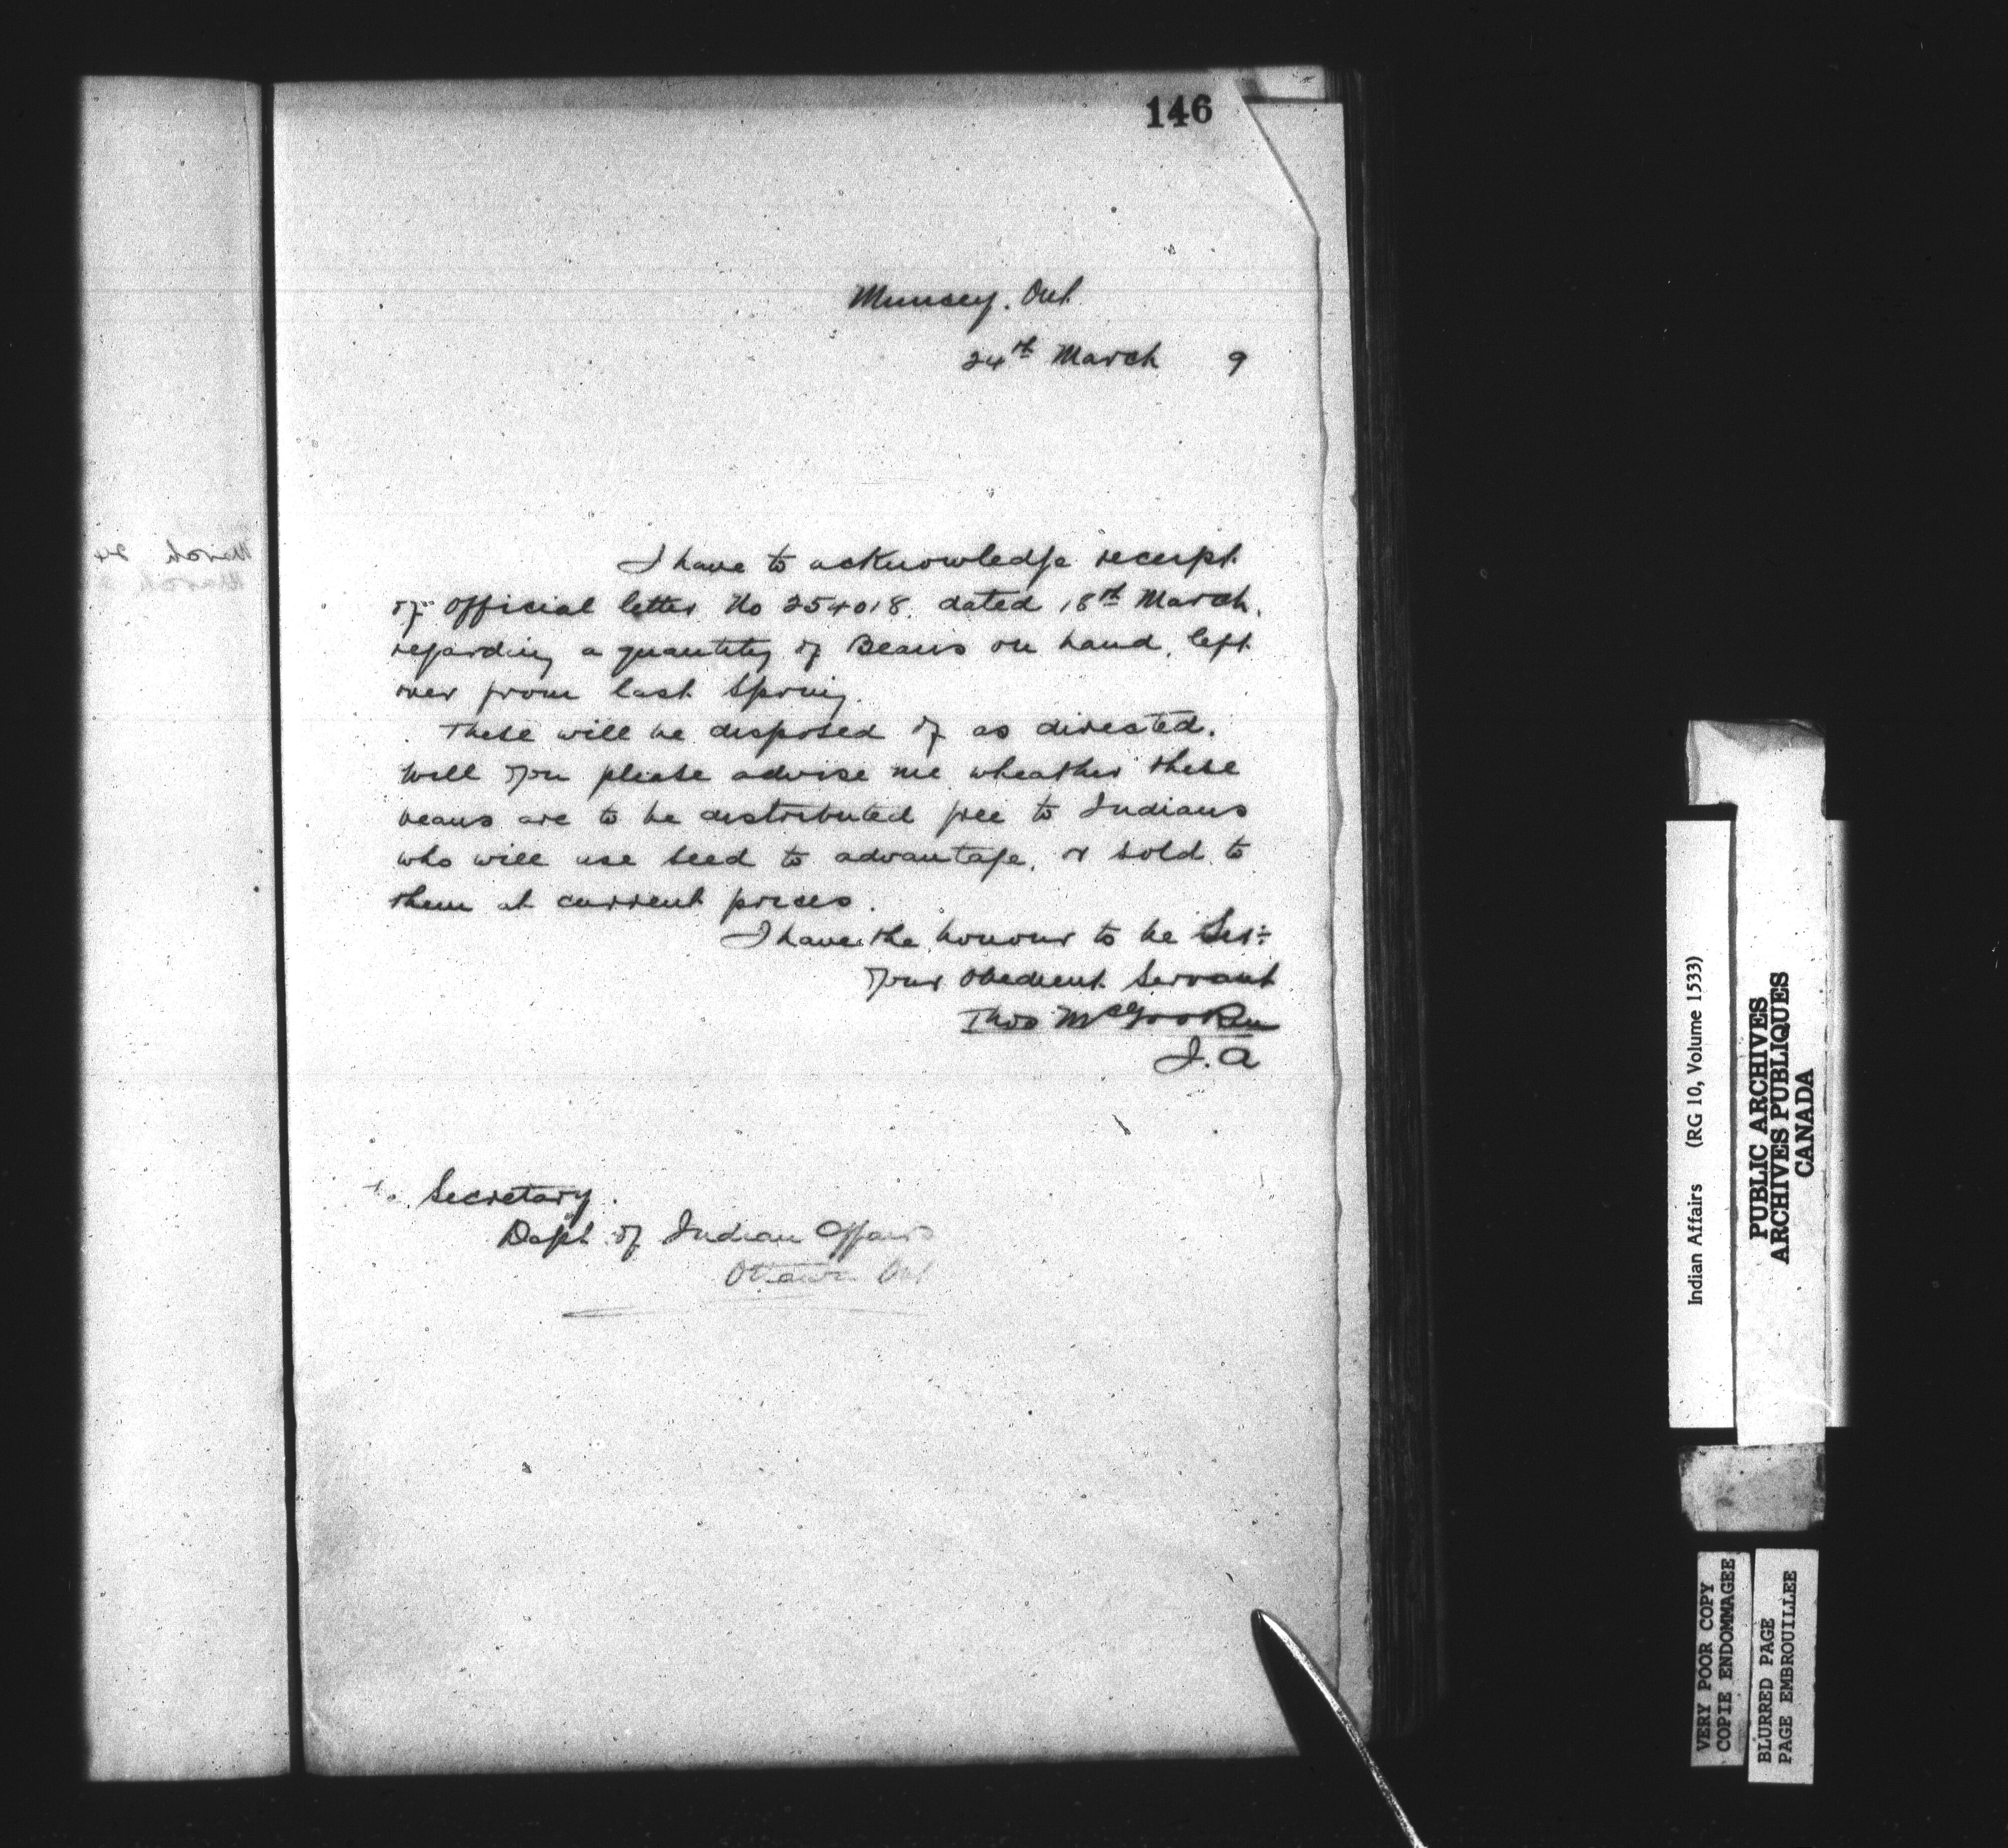 146
Muncey. Ont
24th March 9
I have to acknowledge receipt
of official letter No 254018. dated 18th March.
regarding a quantity of Beans on hand, left
over from last Spring.
These will be disposed of as directed.
Will you please advise me wheather these
beans are to be distributed free to Indians
who will use seed to advantage, or sold to
them at current prices.
I have the honour to be Sir:
Your Obedient Servant
Thos McGooken
I.A
To Secretary.
Dept of Indian Affairs
Ottawa Ont
March 24
March
Indian Affairs (RG 10, Volume 1533)
PUBLIC ARCHIVES
ARCHIVES PUBLIQUES
CANADA
VERY POOR COPY
COPIE ENDOMMAGEE
BLURRED PAGE
PAGE EMBROUILLEE